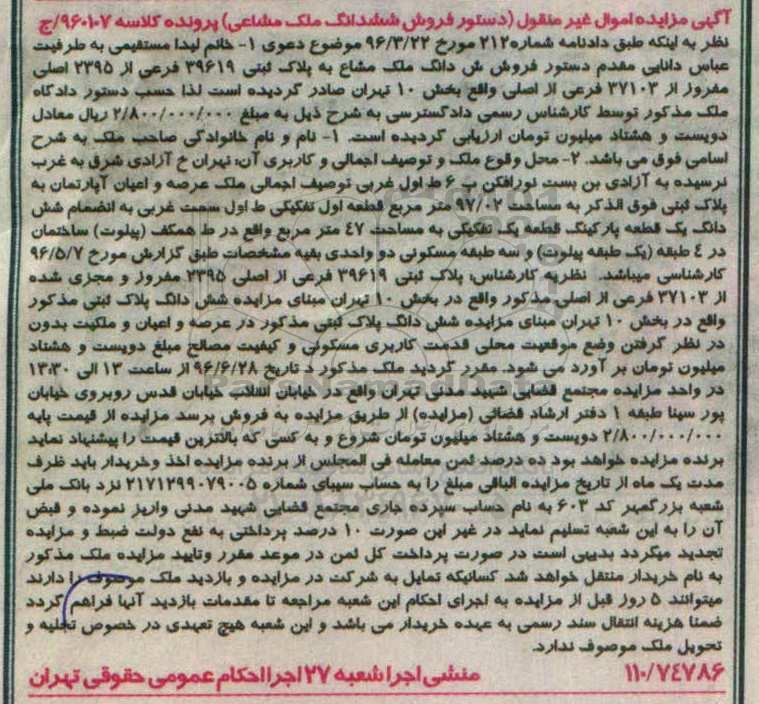 آگهی مزایده اموال غیر منقول (دستور فروش ششدانگ ملک مشاعی) پرونده کلاسه ۹۶۰۱۰۷/ج
نظر به اینکه طبق دادنامه شماره۲۱۲ مورخ ۹۶/۳/۲۲ موضوع دعوی ۱- خانم لیدا مستقیمی به طرفیت
عباس دانایی مقدم دستور فروش ش دانگ ملک مشاع به پلاک ثبتی ۳۹۶۱۹ فرعی از ۲۳۹۵ اصلی
مفروز از ۳۷۱۰۳ فرعی از اصلی واقع بخش ۱۰ تهران صادر گردیده است لذا حسب دستور دادگاه
ملک مذکور توسط کارشناس رسمی دادگستری به شرح ذیل به مبلغ ۲/۸۰۰/۰۰۰/۰۰۰ ریال معادل
دویست و هشتاد میلیون تومان ارزیابی گردیده است. ۱- نام و نام خانوادگی صاحب ملک به شرح
اسامی فوق می باشد. ۲- محل وقوع ملک و توصیف اجمالی و کاربری آن: تهران خ آزادی شرق به غرب
نرسیده به آزادی بن بست نورافکن پ ۶ ط اول غربی توصیف اجمالی ملک عرصه و اعیان آپارتمان به
پلاک ثبتی فوق الذکر به مساحت ۹۷/۰۲ متر مربع قطعه اول تفکیکی ط اول سمت غربی به انضمام شش
دانگ یک قطعه پارکینگ قطعه یک تفکیکی به مساحت ۴۷ متر مربع واقع در ط همکف (پیلوت) ساختمان
در ۴ طبقه (یک طبقه پیلوت) و سه طبقه مسکونی دو واحدی بقیه مشخصات طبق گزارش مورخ ۹۶/۵/۷
کارشناسی میباشد. نظریه کارشناس: پلاک ثبتی ۳۹۶۱۹ فرعی از اصلی ۲۳۹۵ مفروز و مجزی شده
از ۳۷۱۰۳ فرعی از اصلی مذکور واقع در بخش ۱۰ تهران مبنای مزایده شش دانگ پلاک ثبتی مذکور
واقع در بخش ۱۰ تهران مبنای مزایده شش دانگ پلاک ثبتی مذکور در عرصه و اعیان و ملکیت بدون
در نظر گرفتن وضع موقعیت محلی قدمت کاربری مسکونی و کیفیت مصالح مبلغ دویست و هشتاد
میلیون تومان بر آورد می شود. مقرر گردید ملک مذکور د تاریخ ۹۶/۶/۲۸ از ساعت ۱۳ الی ۱۳:۳۰
در واحد مزایده مجتمع قضایی شهید مدنی تهران واقع در خیابان انقلاب خیابان قدس روبروی خیابان
پور سینا طبقه ۱ دفتر ارشاد قضائی (مزایده) از طریق مزایده به فروش برسد مزایده از قیمت پایه
۲/۸۰۰/۰۰۰/۰۰۰ دویست و هشتاد میلیون تومان شروع و به کسی که بالاترین قیمت را پیشنهاد نماید
برنده مزایده خواهد بود ده درصد ثمن معامله فی المجلس از برنده مزایده اخذ وخریدار باید ظرف
مدت یک ماه از تاریخ مزایده الباقی مبلغ را به حساب سیبای شماره ۲۱۷۱۲۹۹۰۷۹۰۰۵ نزد بانک ملی
شعبه بزرگمهر کد ۶۰۳ به نام حساب سپرده جاری مجتمع قضایی شهید مدنی واریز نموده و قبض
آن را به این شعبه تسلیم نماید در غیر این صورت ۱۰ درصد پرداختی به نفع دولت ضبط و مزایده
تجدید میگردد بدیهی است در صورت پرداخت کل ثمن در موعد مقرر وتایید مزایده ملک مذکور
به نام خریدار منتقل خواهد شد کسانیکه تمایل به شرکت در مزایده و بازدید ملک موصوف را دارند
میتوانند ۵ روز قبل از مزایده به اجرای احکام این شعبه مراجعه تا مقدمات بازدید آنها فراهم گردد
ضمنا هزینه انتقال سند رسمی به عهده خریدار می باشد و این شعبه هیچ تعهدی در خصوص تخلیه و
تحویل ملک موصوف ندارد.
۱۱۰/۷۴۷۸۶ منشی اجرا شعبه ۲۷ اجرا احکام عمومی حقوقی تهران